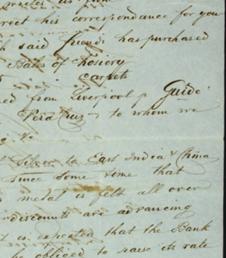 his correspondance for you
said friend, has purchased
Bales of hosiery
carpets
from Liverpool p Guide
Vera Cruz, to whom we
to East India & China
since some time that
metal is felt all over
discounts are advancing
is expected that the Bank
be obliged to raise its rate